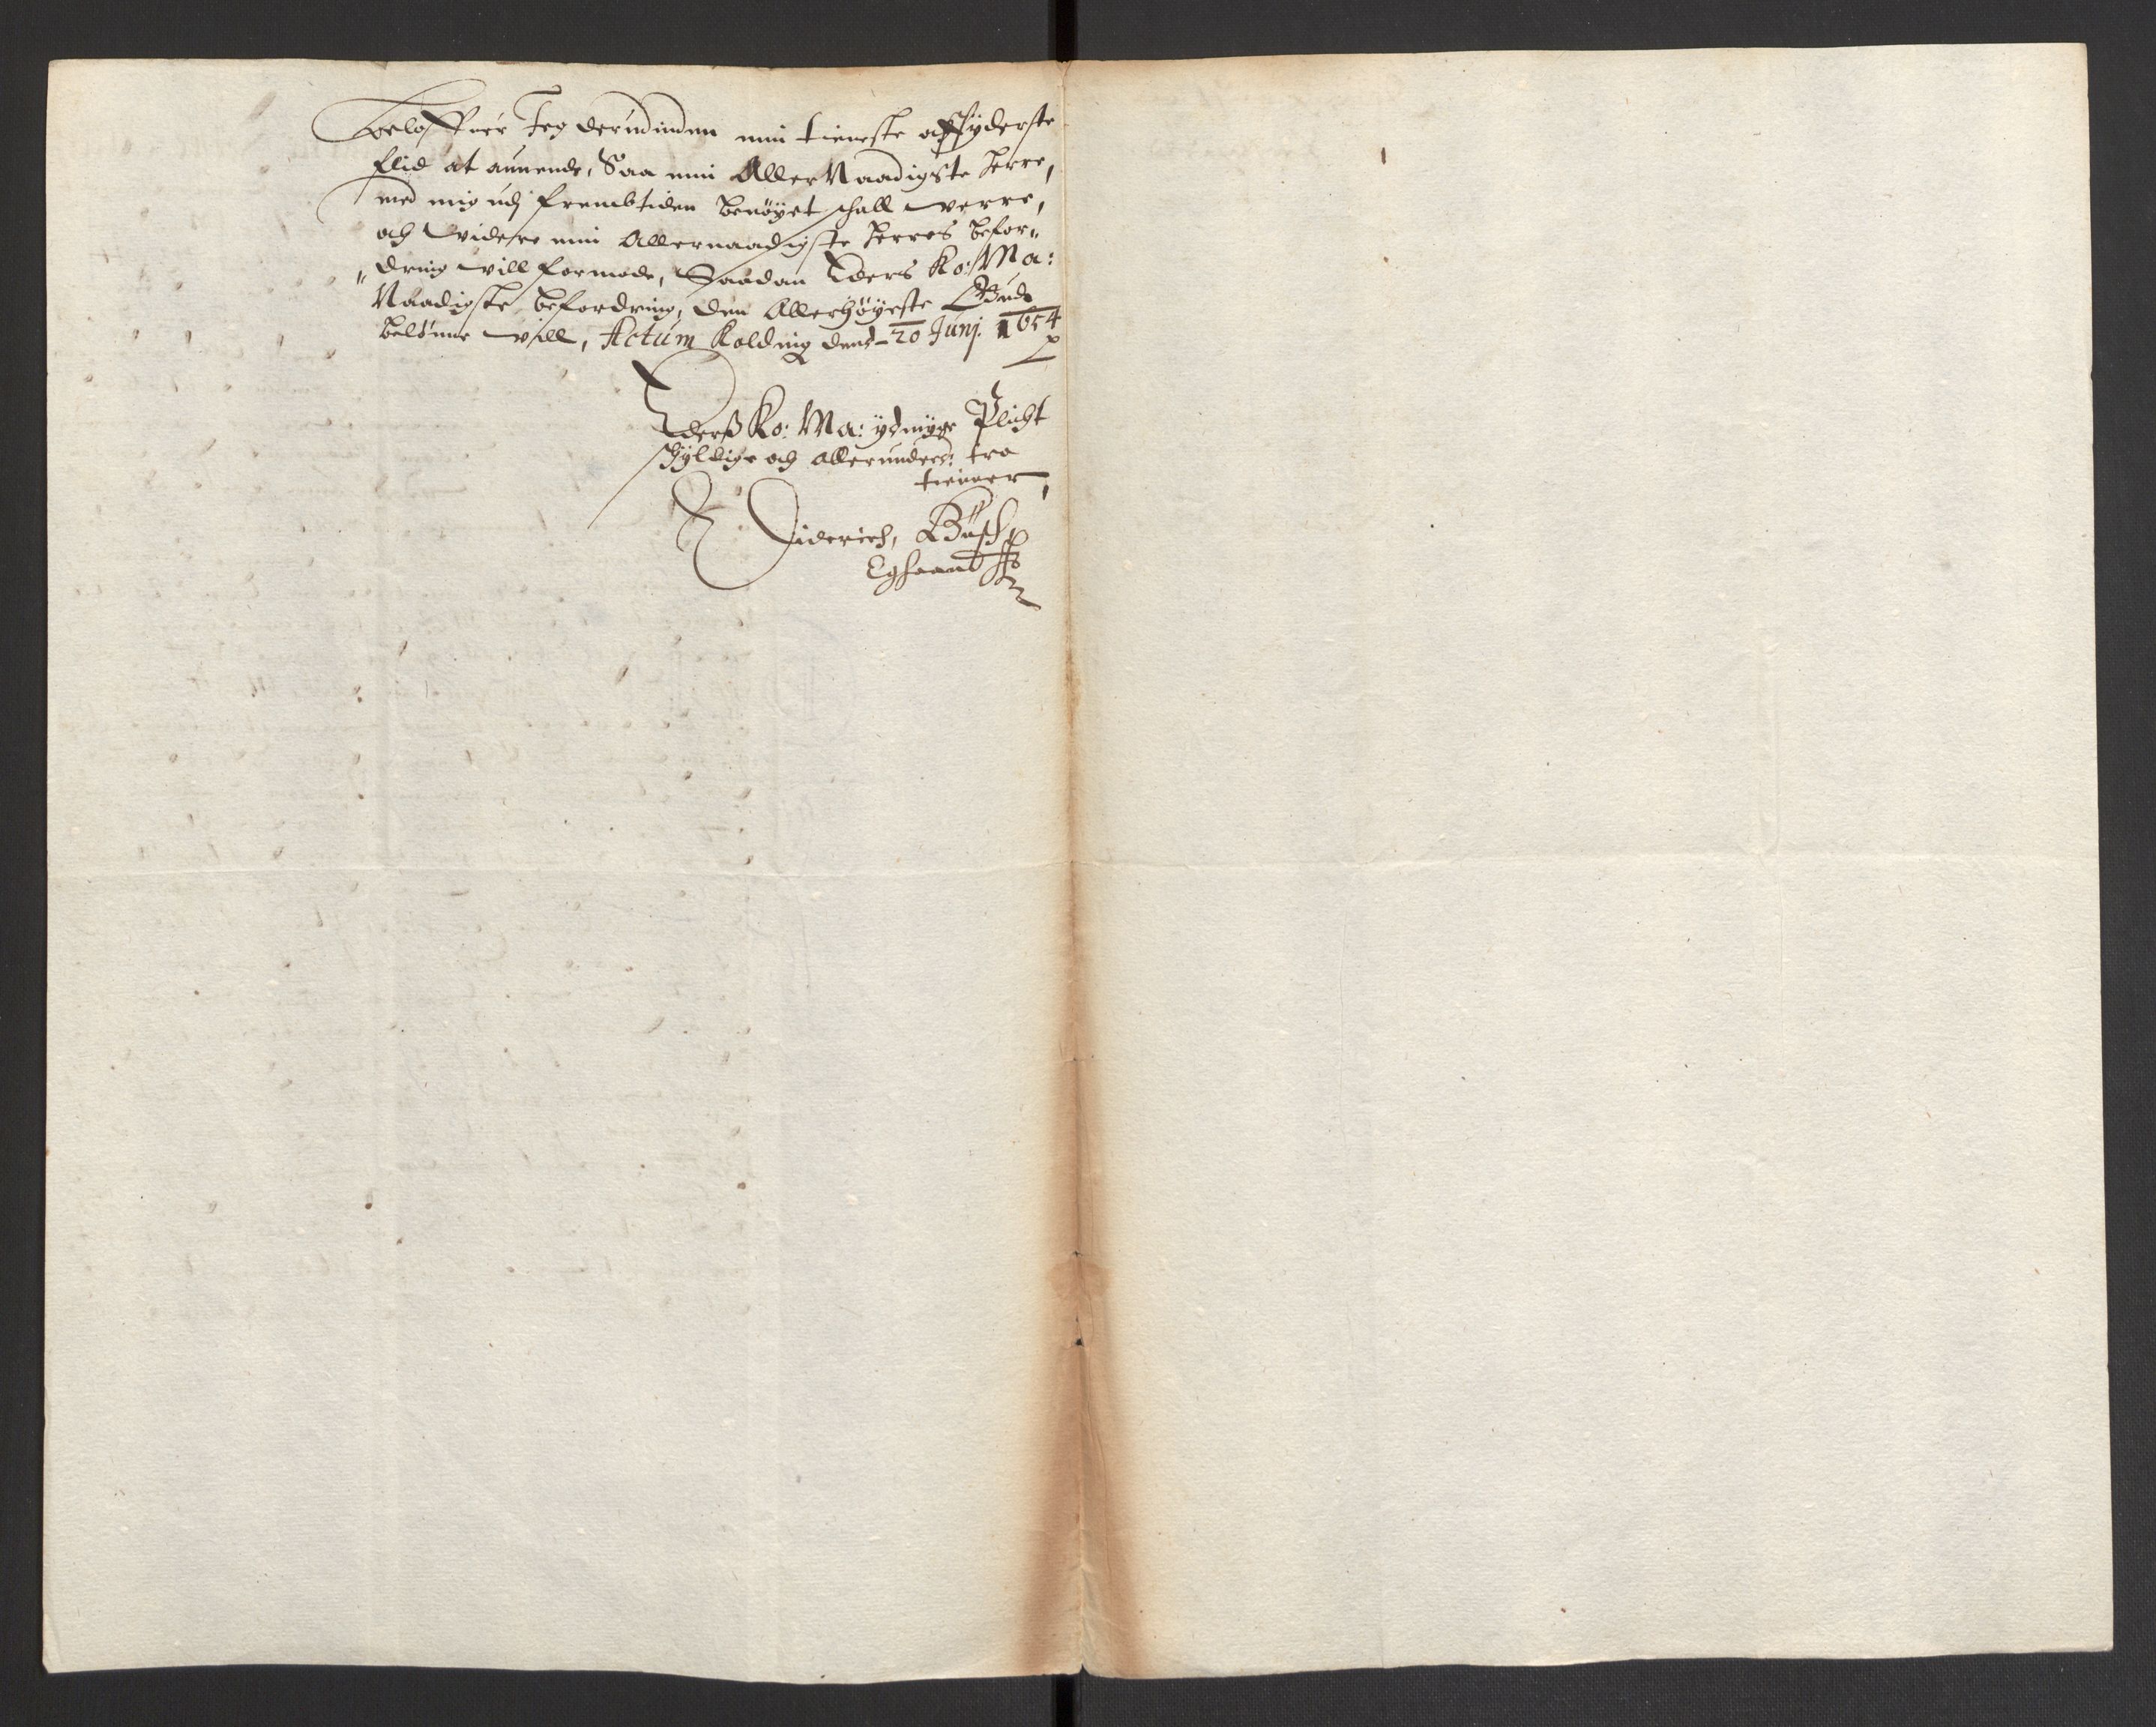 beloffuer Jeg derudinden min tieneste och yderste
flid at anuende, Saa min AllerNaadigste Herre,
med mig udj frembtiden benöyet schall verre,
och videre min Allernaadigste herres befor„
„dring vill formode, Saadan Eders Ko: Ma:
Naadigste befordring, den Allerhöyeste Gud
belönne vill, Actum Kolding den 20 Junj. 1654
Ederß Ko: Ma: ydmyge Plicht
schyldige och allerunderd: tro
tienner,
Diderich, Busch
Eghaand